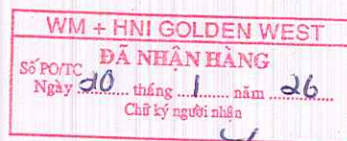 WM + HNI GOLDEN WEST
ĐÃ NHẬN HÀNG
Số PO/TC
Ngày 20 tháng 1 năm 26
Chữ ký người nhận